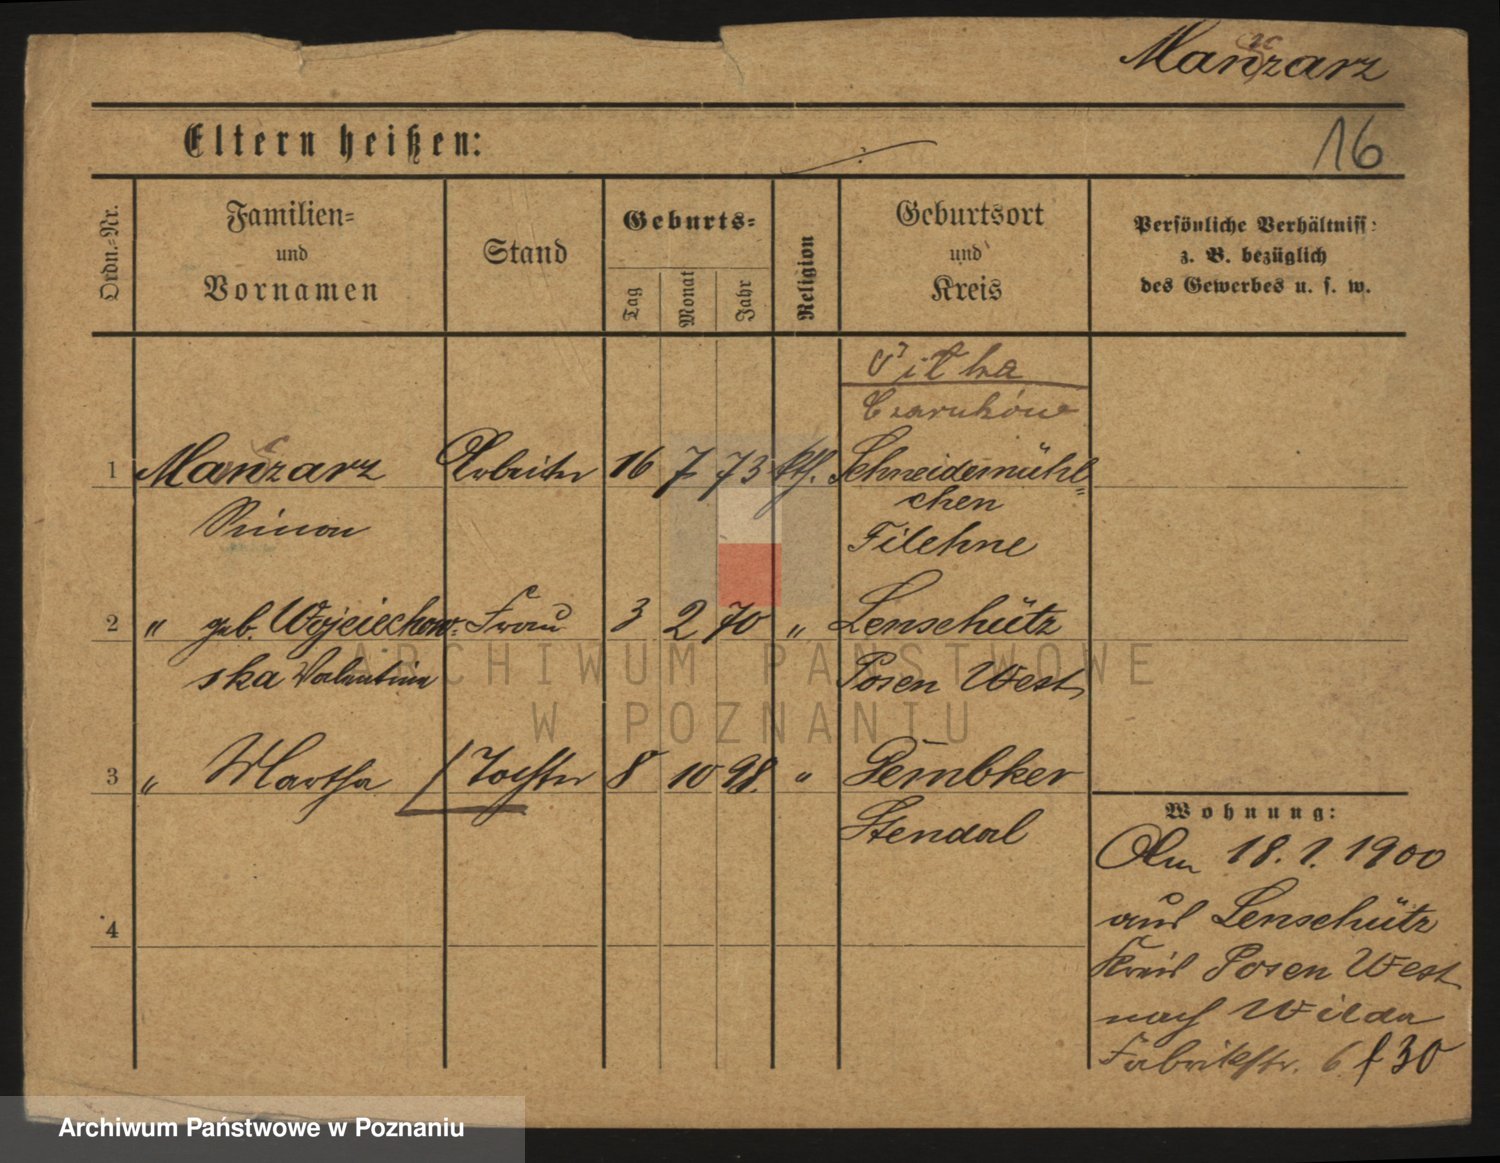 Manzarz
Eltern heißen:
16
Ordn.-Nr.
Familien-
und
Vornamen
Stand
Geburts-
Tag
Monat
Jahr
Religion
Geburtsort
und
Kreis
Persönliche Verhältniss:
z. B. bezüglich
des Gewerbes u. s. w.
Czarnków
1 Manzarz Arbeiter 16 7 73 kth. Schneidemühl-
chen
Simon Filehne
2 " geb. Wojciechow- Frau 3 2 70 " Lenschütz
ska Valentine Posen West
3 " Martha Tochter 8 10 98. " Dembker
Stendal
4
Wohnung:
Am 18. 1. 1900
aus Lenschütz
Kreis Posen West
nach Wilda
Fabrikstr. 6 f 30
ARCHIWUM PAŃSTWOWE
W POZNANIU
Archiwum Państwowe w Poznaniu